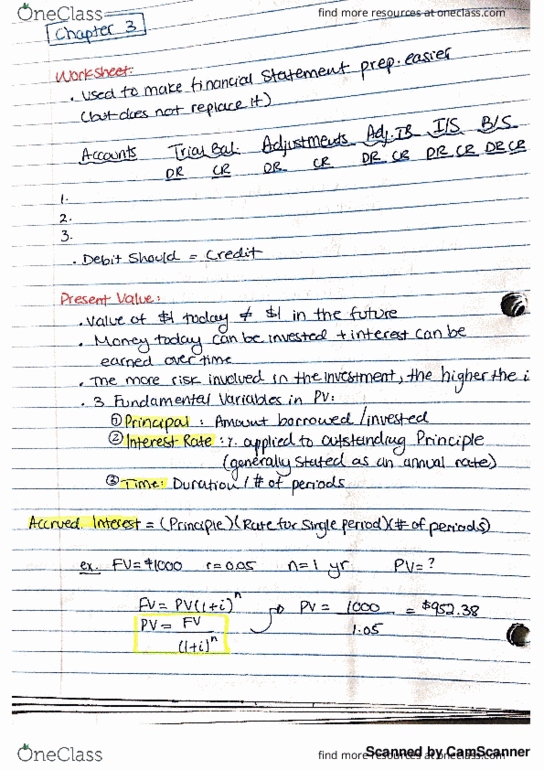 OneClass
find more resources at oneclass.com
Chapter 3
Worksheet:
• Used to make financial Statement prep. easier
(but does not replace it)
Accounts Trial Bal Adjustments Adj. TB I/S B/S
DR CR DR CR DR CR DR CR DR CR
1.
2.
3.
• Debit Should = Credit
Present Value:
• Value of $1 today ≠ $1 in the future
• Money today can be invested + interest can be
earned over time
• The more risk involved in the investment, the higher the i
• 3 Fundamental Variables in PV:
① Principal : Amount borrowed / invested
② Interest Rate : % applied to outstanding Principle
(generally stated as an annual rate)
③ Time: Duration / # of periods
Accrued Interest = (Principle)(Rate for single period)(# of periods)
ex. FV = $1000 r = 0.05 n = 1 yr PV = ?
FV = PV(1+i)^n
PV = FV / (1+i)^n
PV = 1000 / 1.05 = $952.38
OneClass
find more resources at oneclass.com
Scanned by CamScanner